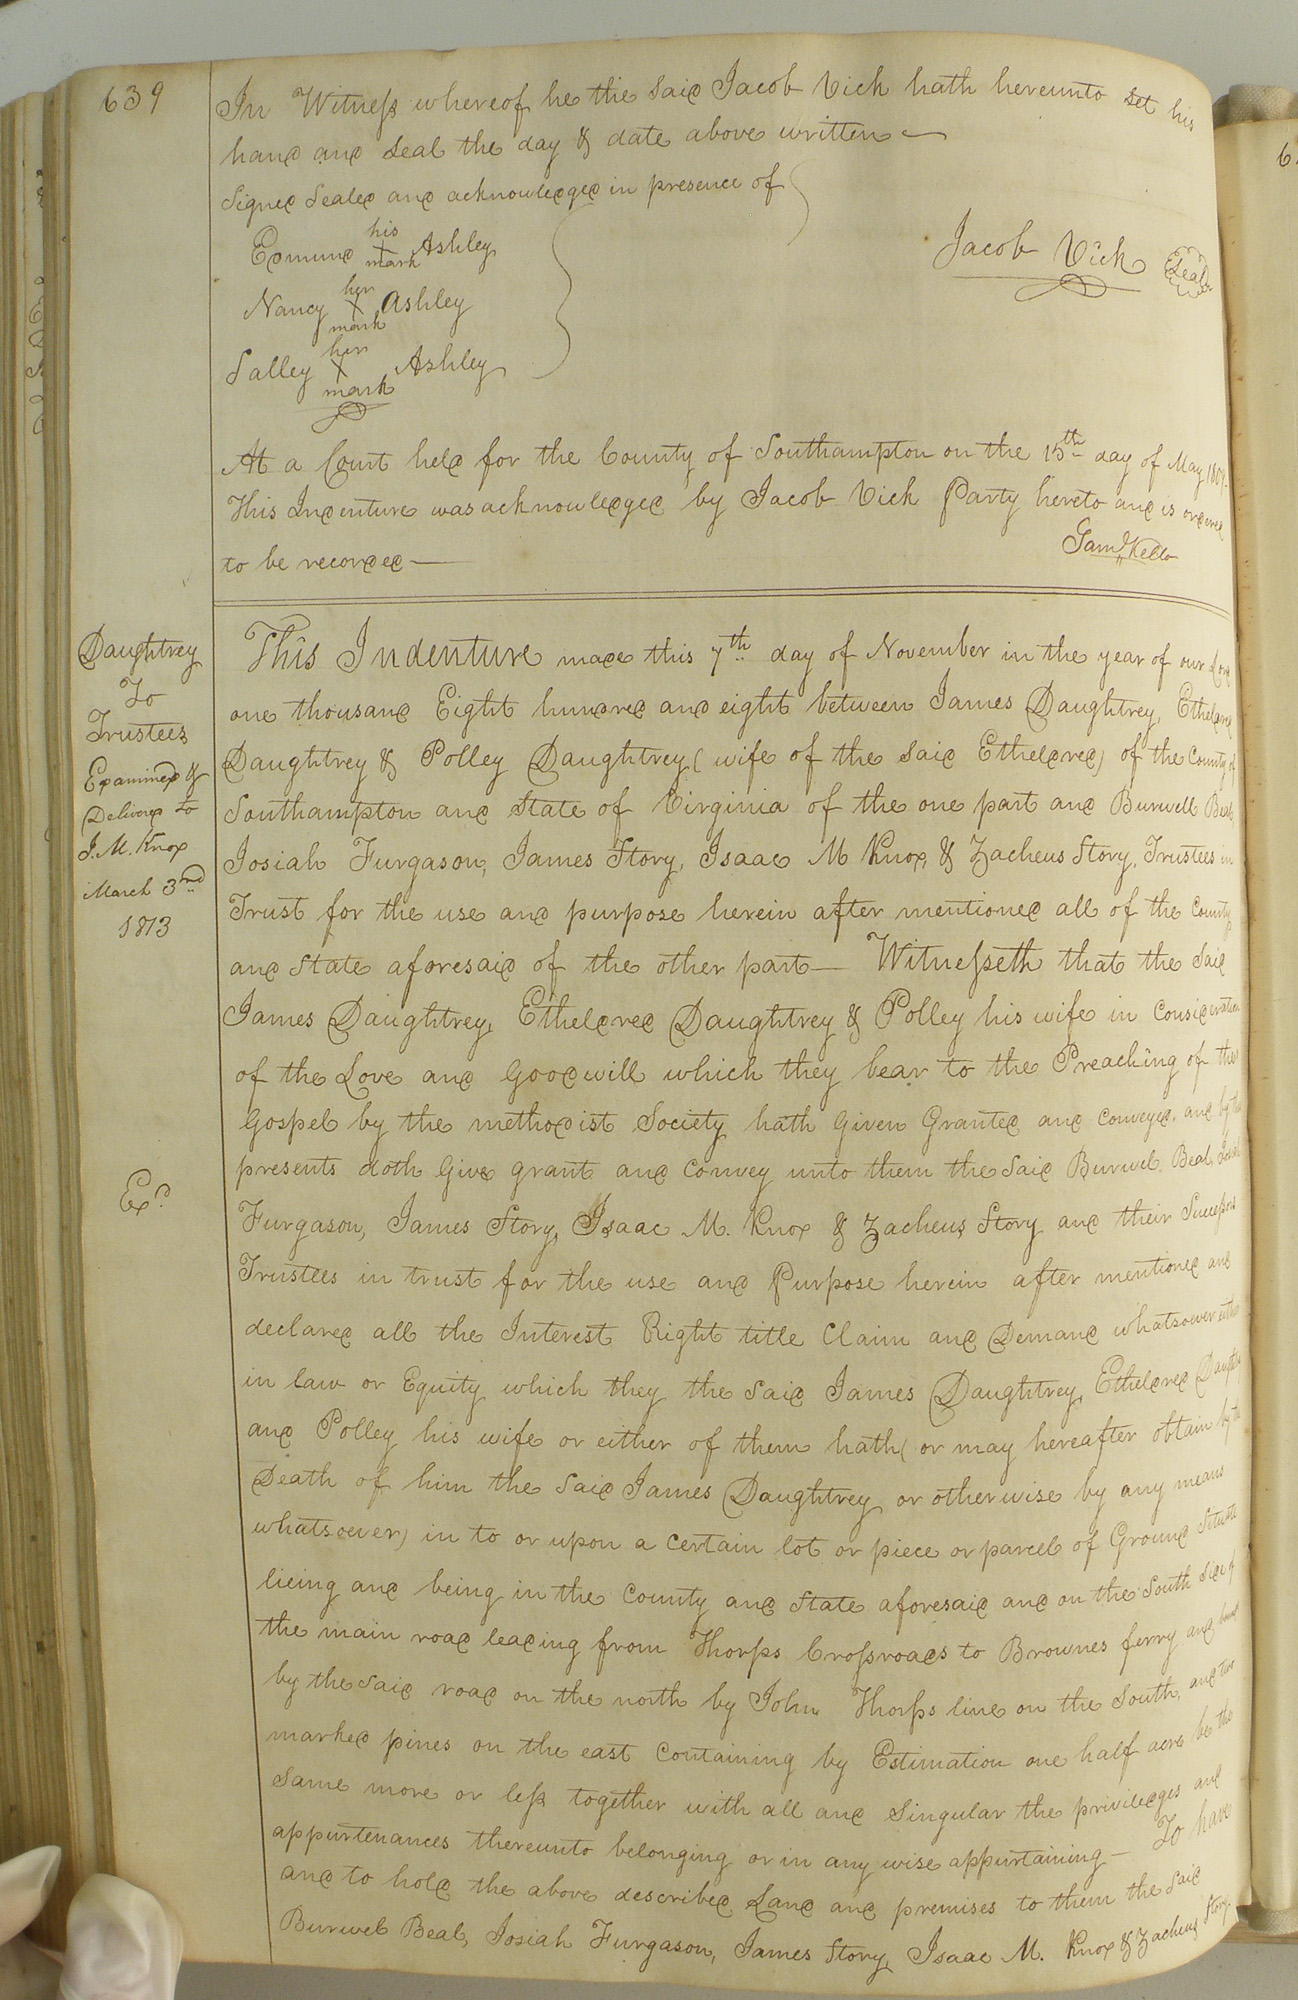 639
In Witness whereof he the said Jacob Vick hath hereunto set his
hand and seal the day & date above written
Signed Sealed and acknowledged in presence of
Edmund his X mark Ashley
Jacob Vick Seal
Nancy her X mark Ashley
Salley her X mark Ashley
At a Court held for the County of Southampton on the 15th day of May
This Indenture was acknowledged by Jacob Vick Party hereto and is ordered
to be recorded
Saml Kello
Daughtrey
To
Trustees
Examined &
Delivered to
I. M. Knox
March 3rd
1813
Exd
This Indenture made this 7th day of November in the year of our Lord
one thousand Eight hundred and eight between James Daughtrey, Etheldred
Daughtrey & Polley Daughtrey (wife of the said Etheldred) of the County of
Southampton and State of Virginia of the one part and Burwell Beal,
Josiah Furgason, James Story, Isaac M Knox & Zacheus Story, Trustees in
Trust for the use and purpose herein after mentioned all of the County
and State aforesaid of the other part — Witnesseth that the said
James Daughtrey, Etheldred Daughtrey & Polley his wife in Consideration
of the Love and Goodwill which they bear to the Preaching of the
Gospel by the methodist Society hath Given Granted and conveyed, and by
presents doth Give grant and convey unto them the said Burwel Beal, Josiah
Furgason, James Story, Isaac M. Knox & Zacheus Story and their Successors
Trustees in trust for the use and Purpose herein after mentioned and
declared all the Interest Right title Claim and Demand whatsoever either
in law or Equity which they the said James Daughtrey, Etheldred Daughtrey
and Polley his wife or either of them hath (or may hereafter obtain by the
Death of him the said James Daughtrey or otherwise by any means
whatsoever) in to or upon a certain lot or piece or parcel of Ground Situate
lieing and being in the County and State aforesaid and on the South side of
the main road leading from Thorps Crossroads to Brownes ferry and bound
by the said road on the north by John Thorps line on the South, and two
marked pines on the east Containing by Estimation one half acre be the
same more or less together with all and Singular the priviledges and
appurtenances thereunto belonging or in any wise appurtaining — To have
and to hold the above described Land and premises to them the said
Burwel Beal, Josiah Furgason, James Story, Isaac M. Knox & Zacheus Story